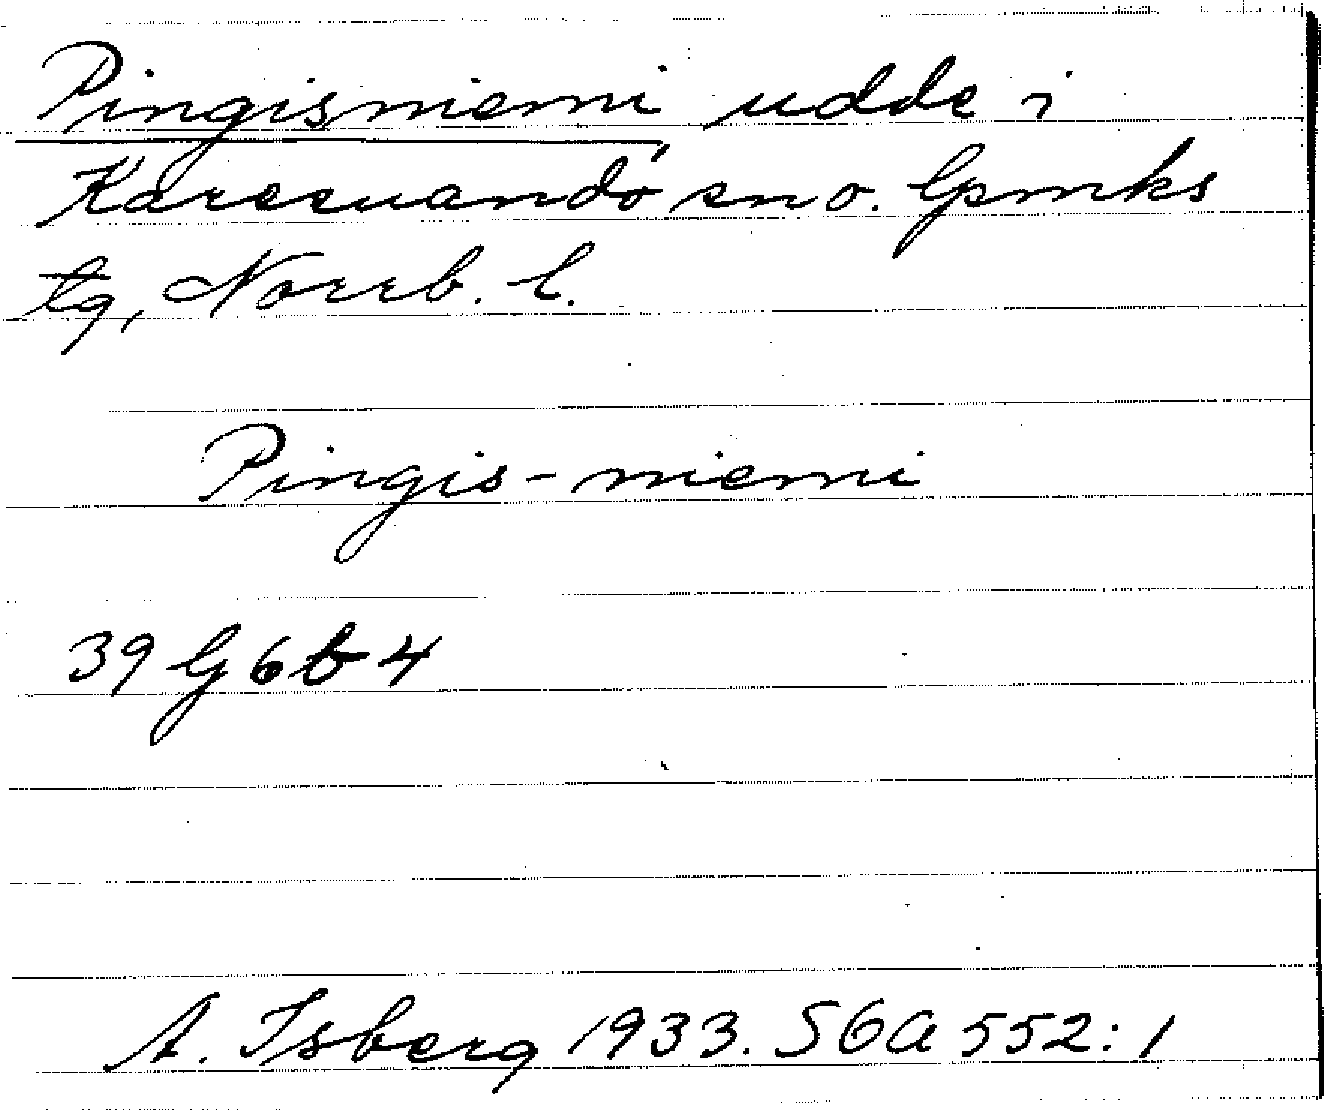 Pingisniemi udde i
Karesuando sn o. Gpmks
tg, Norrb. l.
Pingis-niemi
39 G 6 b 4
A. Isberg 1933. SGA 552:1